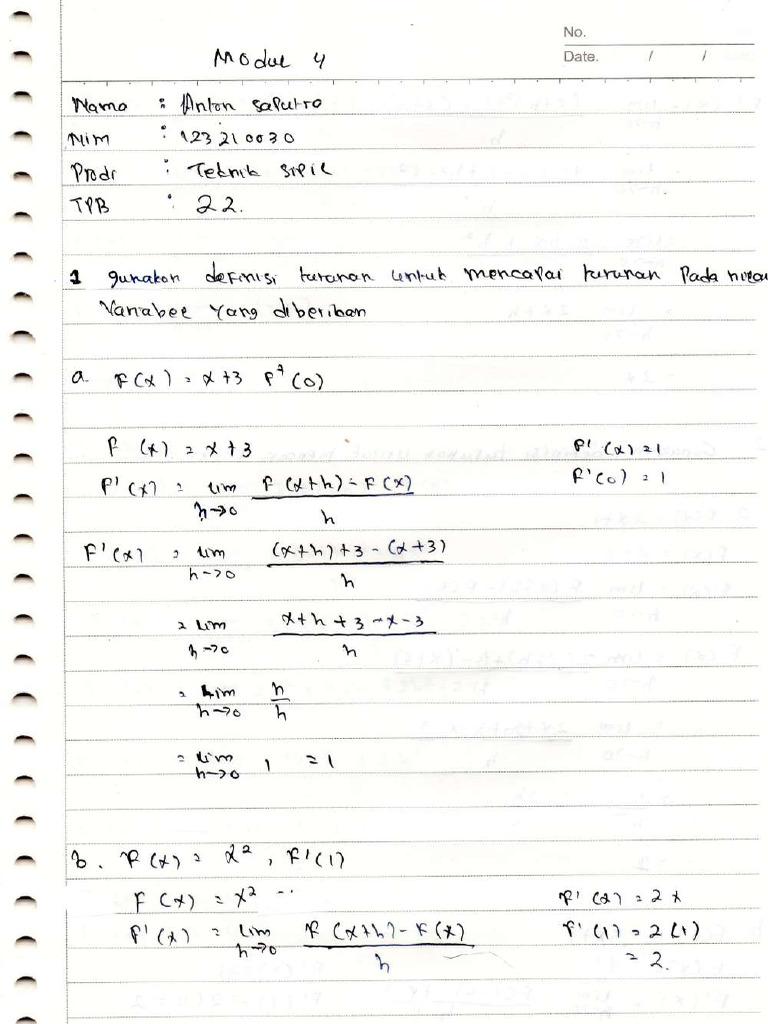 No.
Modul 4
Date. / /
Nama : Anton saputro
Nim : 123210030
Prodi : Teknik sipil
TPB : 22.
1 gunakan definisi turunan untuk mencapai turunan Pada nilai
Variabel yang diberikan
a. F(x) = x+3 F'(0)
F (x) = x+3 F'(x) = 1
F'(x) = lim h→0 F(x+h) - F(x) / h F'(0) = 1
F'(x) = lim h→0 (x+h)+3-(x+3) / h
= lim h→0 x+h+3-x-3 / h
= lim h→0 h/h
= lim h→0 1 = 1
b. F(x) = x², F'(1)
F(x) = x² F'(x) = 2x
F'(x) = lim h→0 F(x+h)-F(x) / h F'(1) = 2(1)
= 2.